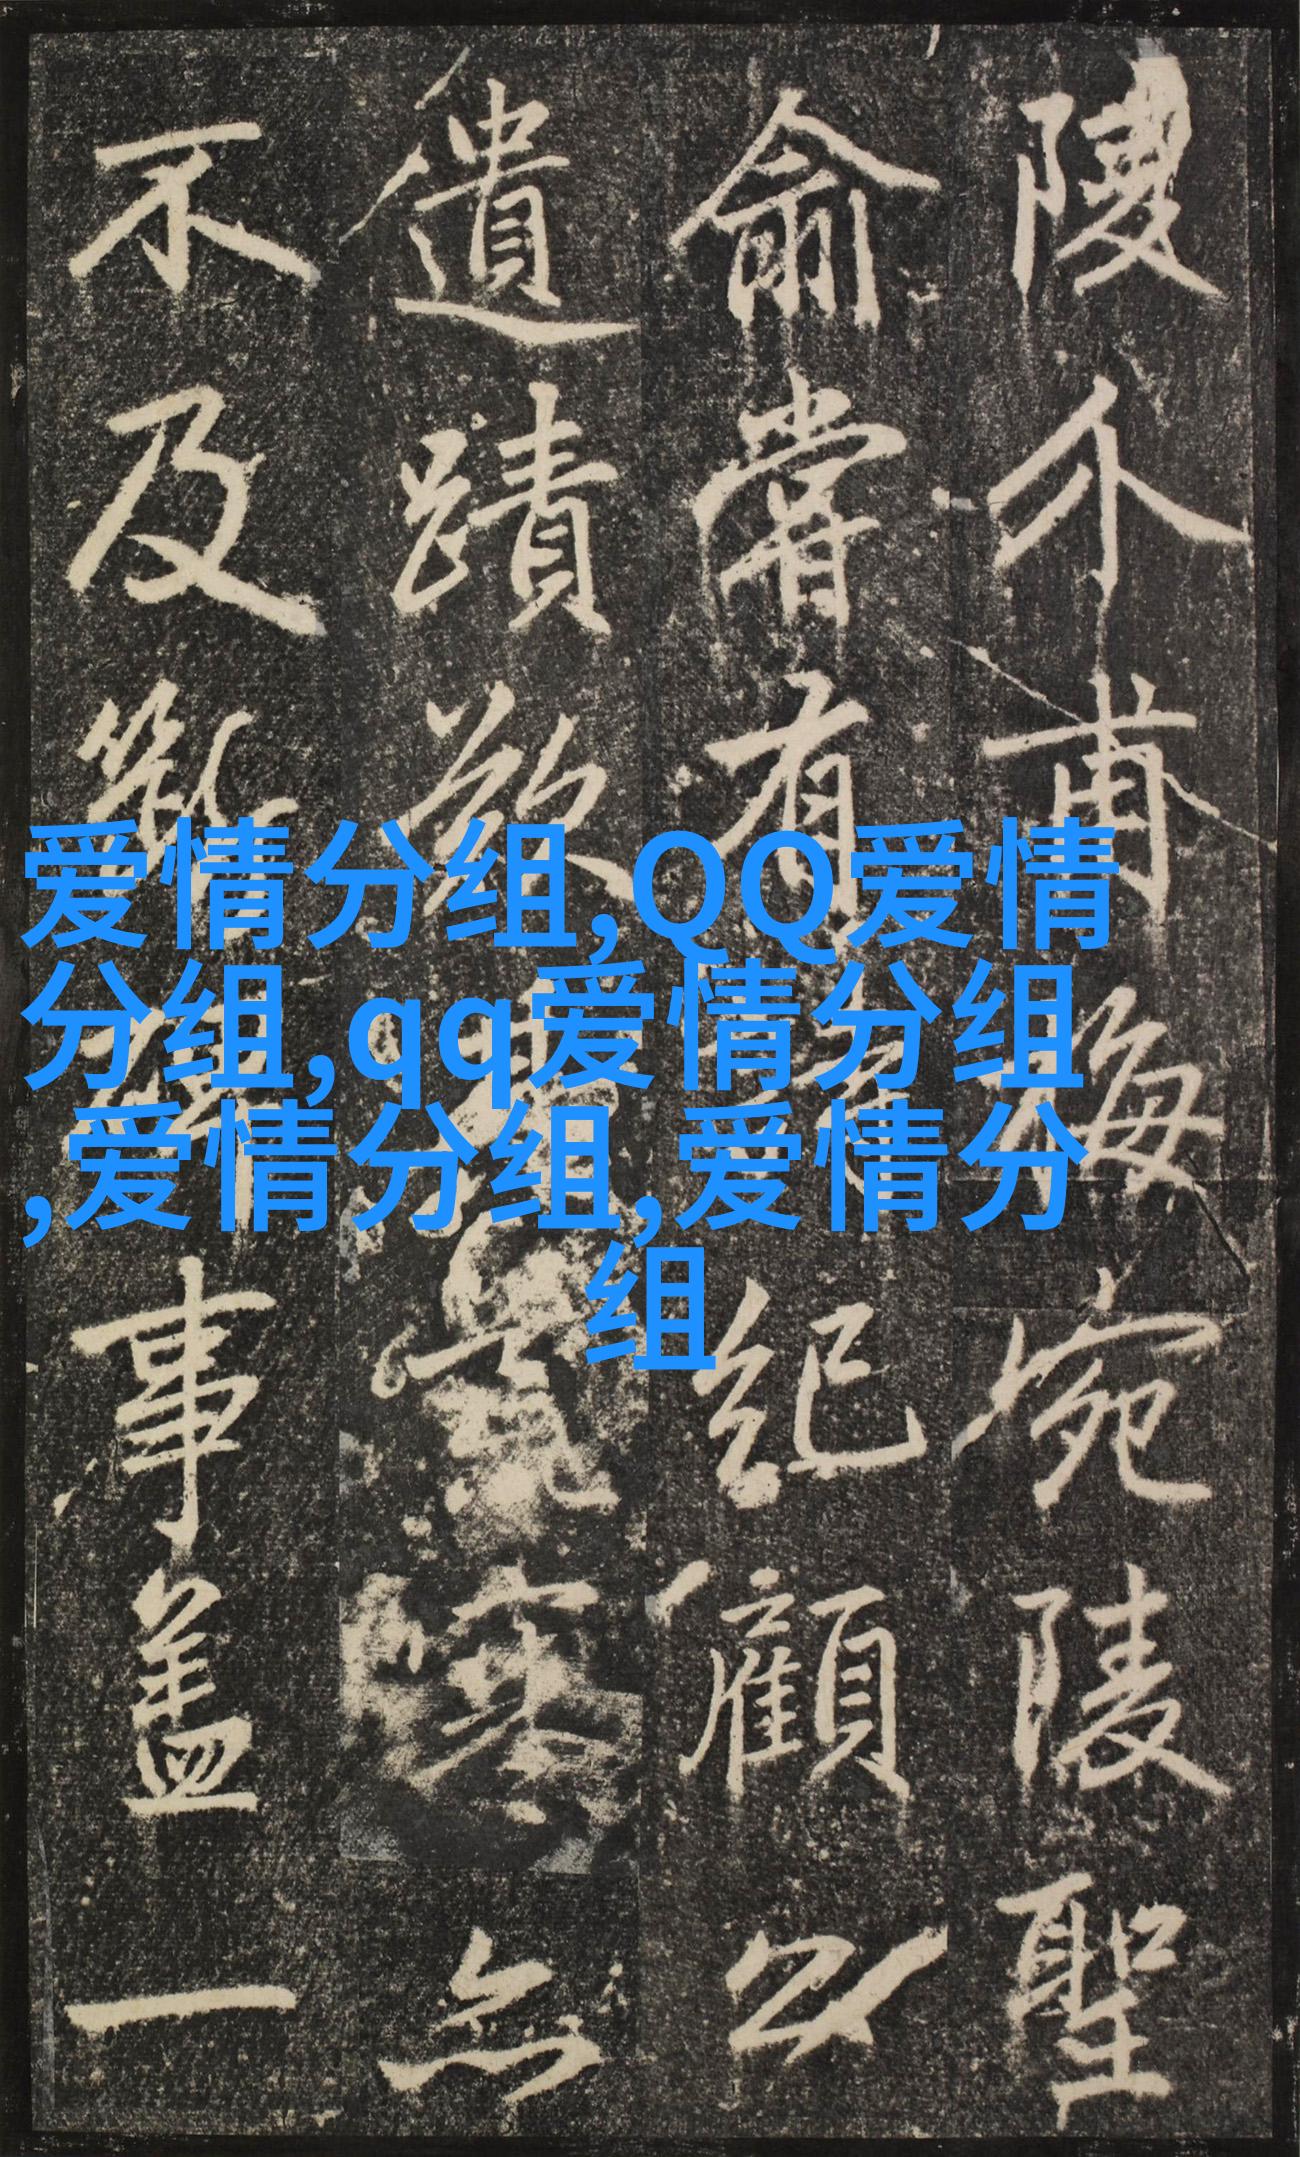 爱情分组,QQ爱情
分组,qq爱情分组
,爱情分组,爱情分
组
陵介甫梅宛陵聖
俞嘗有紀顧以
遺蹟欲塞無
不及事蓋一